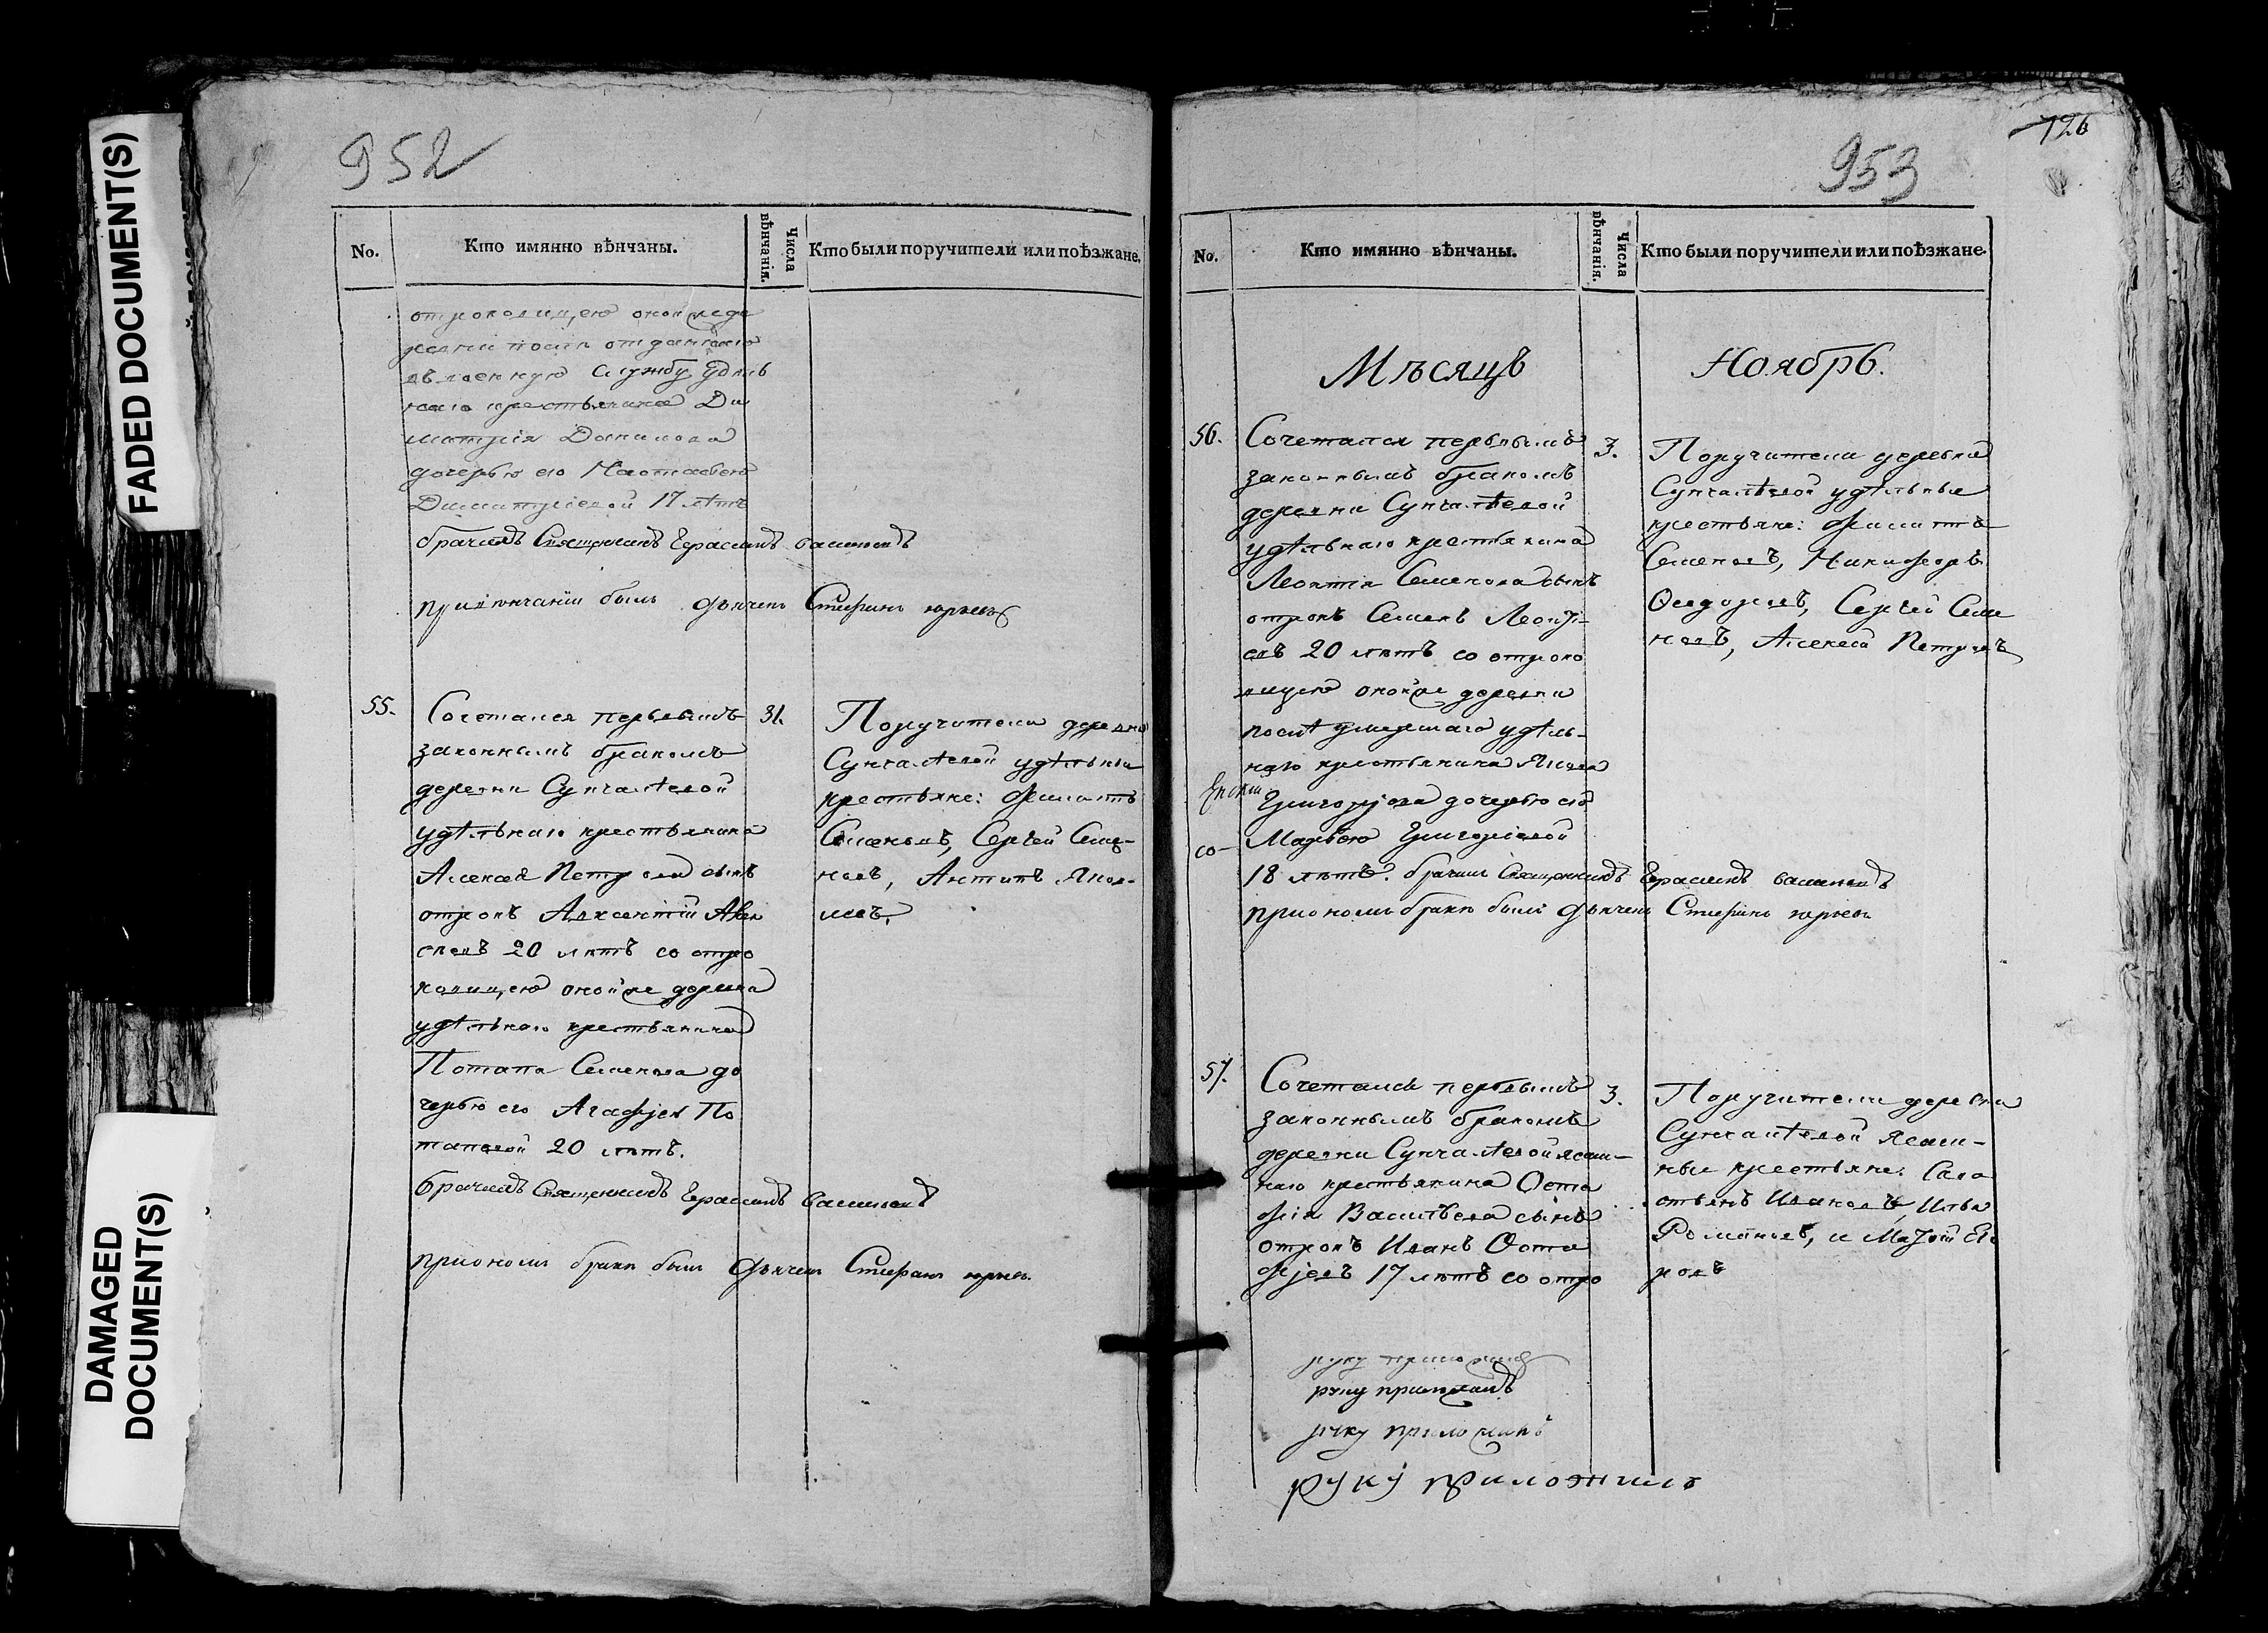 FADED DOCUMENT(S)
DAMAGED
DOCUMENT(S)
952
No.
Кто имянно вѣнчаны.
Числа
вѣнчанія.
Кто были поручители или поѣзжане.
отроковицею оной же де
ревни послѣ отданнаго
въ военную службу удѣль
наго крестьянина Ди
митрія Данилова
дочерью его Настасьею
Димитріевой 17 лѣтъ
брачилъ Священникъ Герасимъ
при вѣнчаніи былъ дьячекъ Стефанъ юрьевъ
55.
Сочетался первымъ
законнымъ бракомъ
деревни Сунчалѣевой
удѣльнаго крестьянина
Алексея Петрова сынъ
отрокъ Авксентій Алек
сѣевъ 20 лѣтъ со отро
ковицею оной же деревни
удѣльнаго крестьянина
Потапа Семенова до
черью его Агафьею По
таповой 20 лѣтъ.
брачилъ Священникъ Герасимъ
при ономъ бракѣ былъ дьячекъ Стефанъ юрьевъ
31.
Поручители деревни
Сунчалѣевой удѣльныя
крестьяне: Филиппъ
Семеновъ, Сергѣй Семе-
новъ, Антипъ Яков-
левъ.
953
126
No.
Кто имянно вѣнчаны.
Числа
вѣнчанія.
Кто были поручители или поѣзжане.
Мѣсяцъ Ноябрь.
56.
Сочетался первымъ
законнымъ бракомъ
деревни Сунчалѣевой
удѣльнаго крестьянина
Леонтія Семенова сынъ
отрокъ Семенъ Леонтъ-
евъ 20 лѣтъ со отроко
вицею оной же деревни
послѣ умершаго удѣль-
наго крестьянина Якова
Григорьева дочерью его
Марьею Григорьевой
18 лѣтъ. брачилъ Священникъ Герасимъ
при ономъ бракѣ былъ дьячекъ Стефанъ юрьевъ
со-
3.
Поручители деревни
Сунчалѣевой удѣльныя
крестьяне: Филиппъ
Семеновъ, Никифоръ
Ѳедоровъ, Сергѣй Семе
новъ, Алексей Петровъ
57.
Сочетался первымъ
законнымъ бракомъ
деревни Сунчалѣевой ясаш-
наго крестьянина Оста
фія Васильева сынъ
отрокъ Иванъ Оста
фьевъ 17 лѣтъ со отро
3.
Поручители деревни
Сунчалѣевой ясаш-
ные крестьяне: Сава
стьянъ Ивановъ, Илья
Романовъ, и Матвѣй Его
ровъ
руку приложилъ
руку приложилъ
руку приложилъ
руку приложилъ